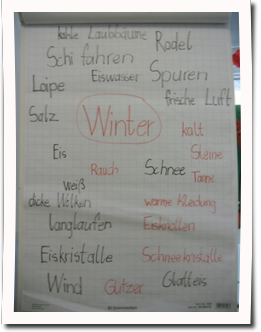 kahle Laubbäume Rodel
Schi fahren
Eiswasser Spuren
Loipe
frische Luft
Salz Winter kalt
Eis Steine
Rauch Schnee Tanne
weiß
dicke Wolken warme Kleidung
langlaufen Eiskristallen
Eiskristalle Schneekristalle
Wind Glitzer Glatteis